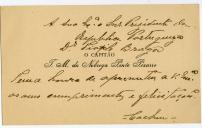 A Sua Exª o Snr. Presidente da
Republica Portugueza
Dr. Teofilo Braga
O CAPITÃO
T. M. da Nobrega Pinto Pizarro
Tem a honra de apresentar a V. Exª
os seus cumprimentos e felicitações